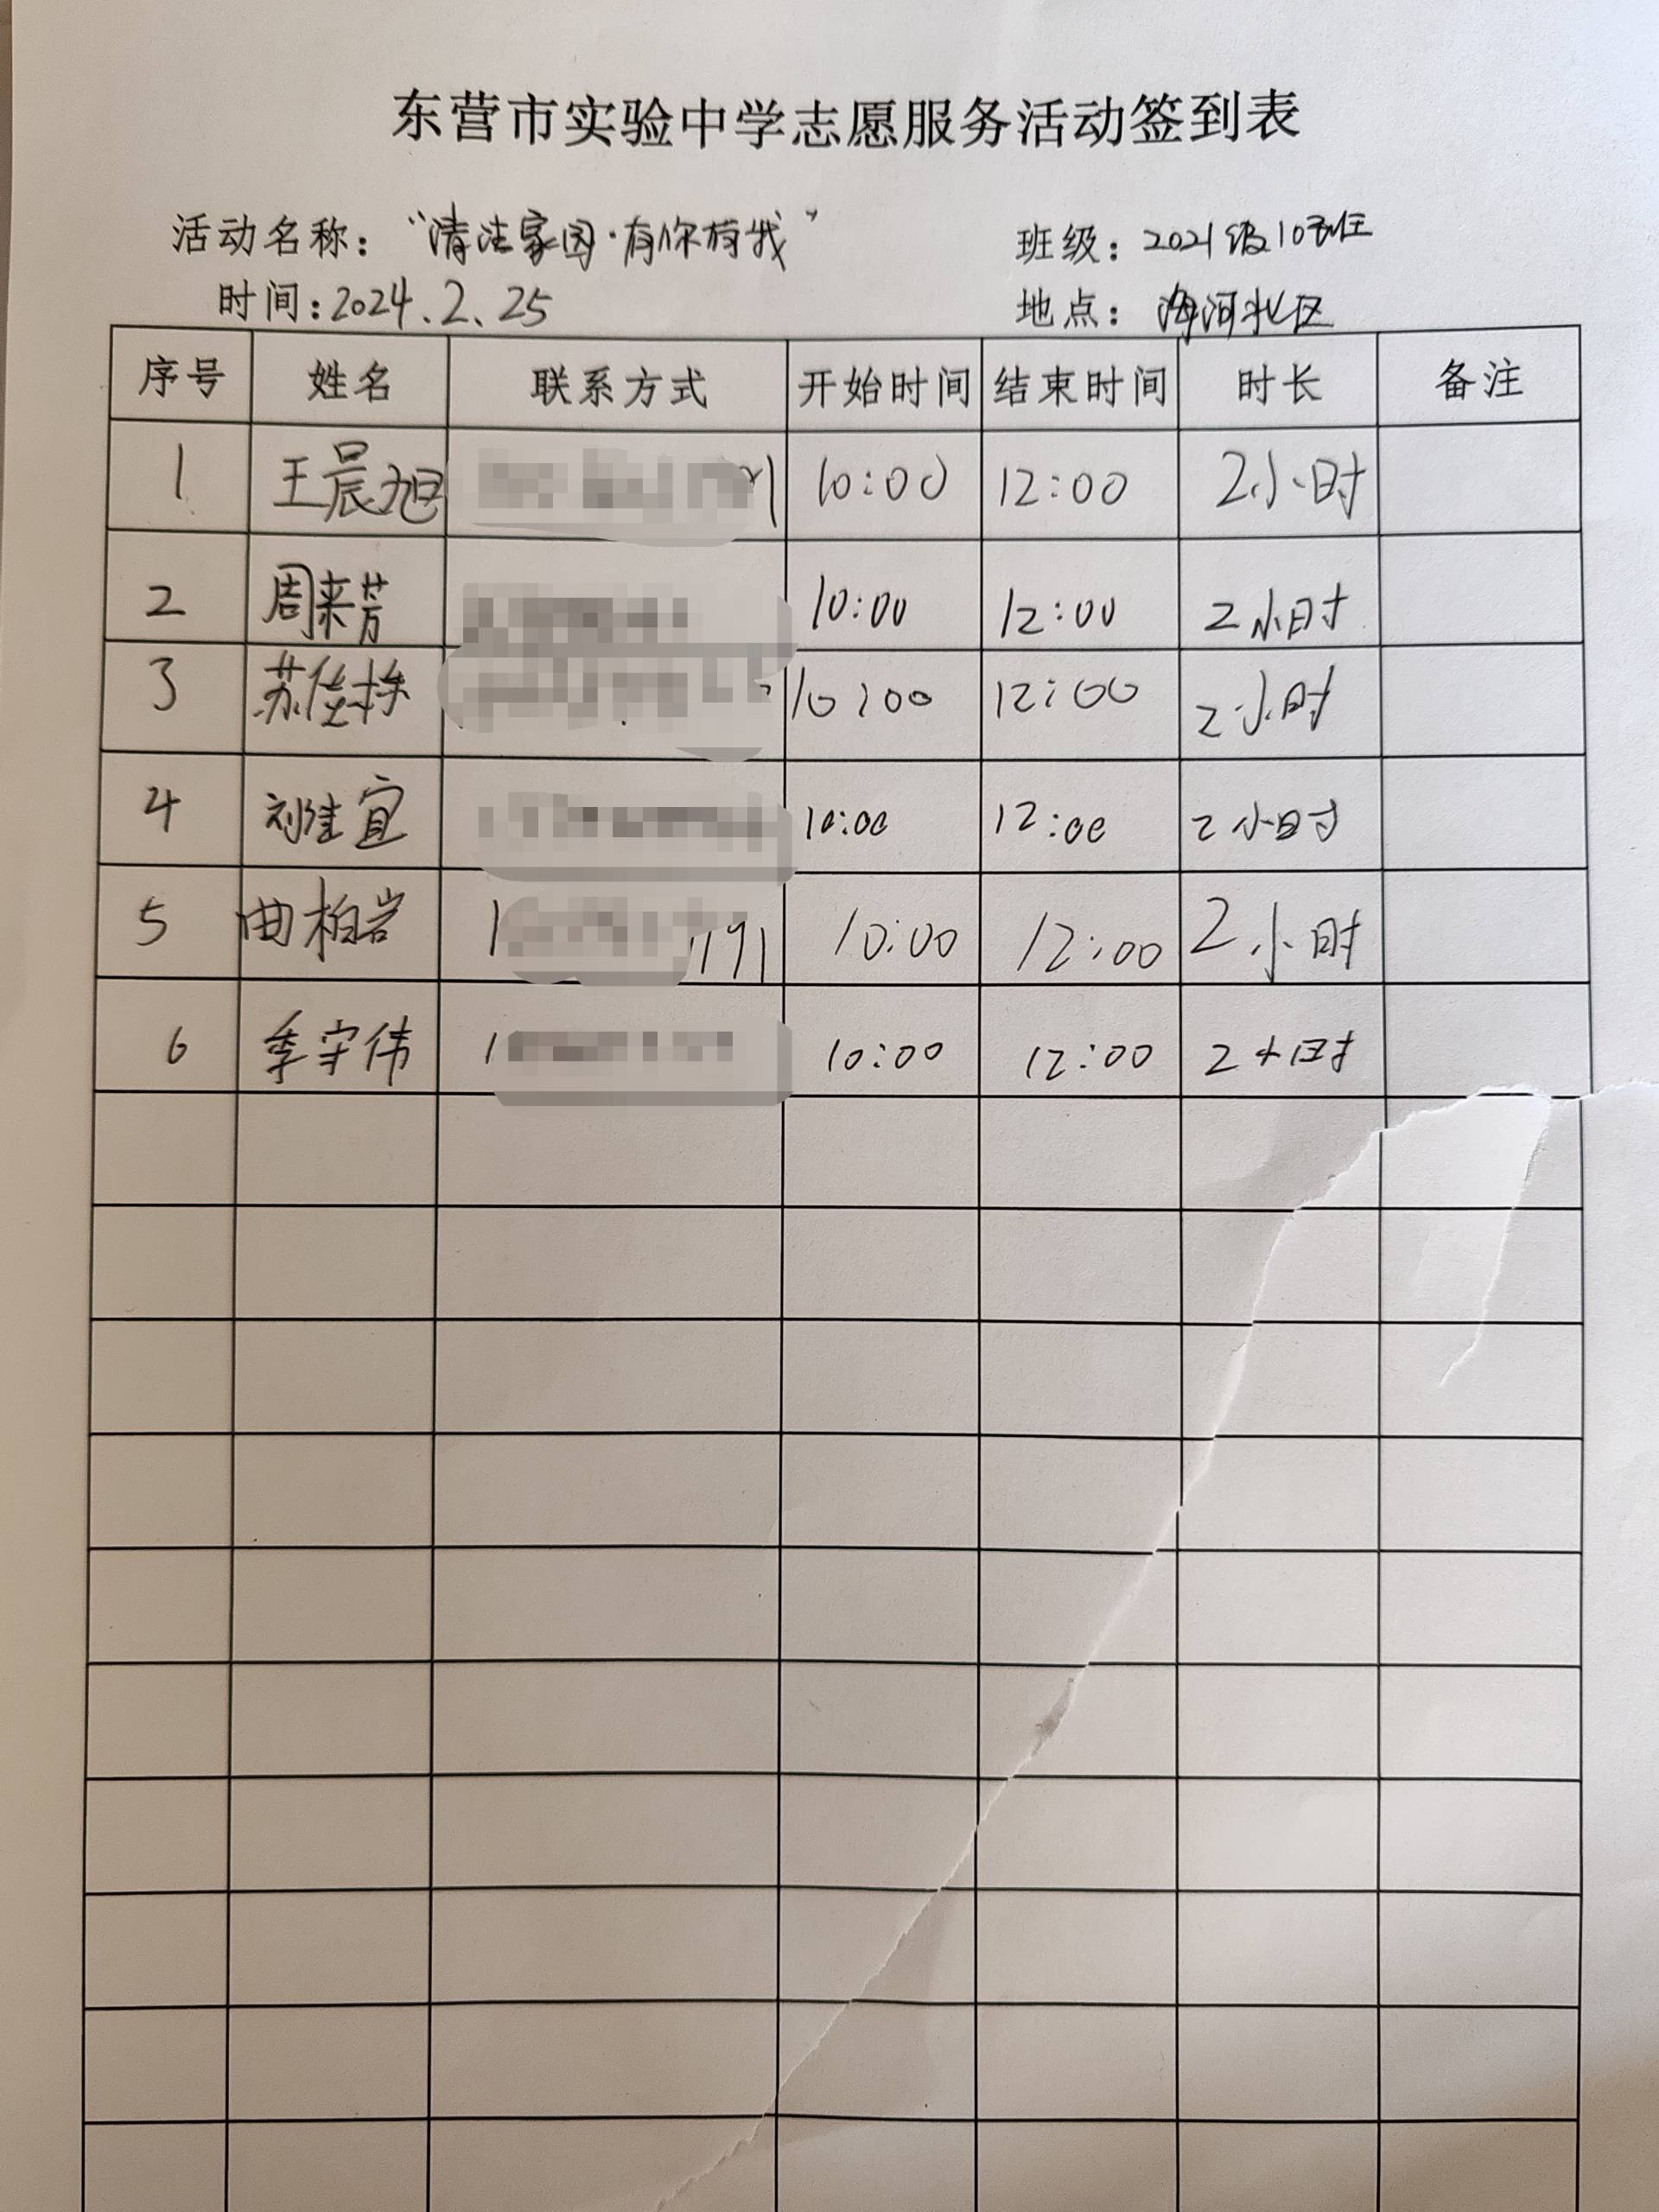 东营市实验中学志愿服务活动签到表
活动名称：“清洁家园·有你有我” 班级：2021级10班
时间：2024.2.25 地点：海河北区
序号 姓名 联系方式 开始时间 结束时间 时长 备注
1 王晨旭 10:00 12:00 2小时
2 周来芳 10:00 12:00 2小时
3 苏佳 10:00 12:00 2小时
4 刘佳宜 10:00 12:00 2小时
5 曲柏岩 1 1191 10:00 12:00 2小时
6 季守伟 1 10:00 12:00 2小时